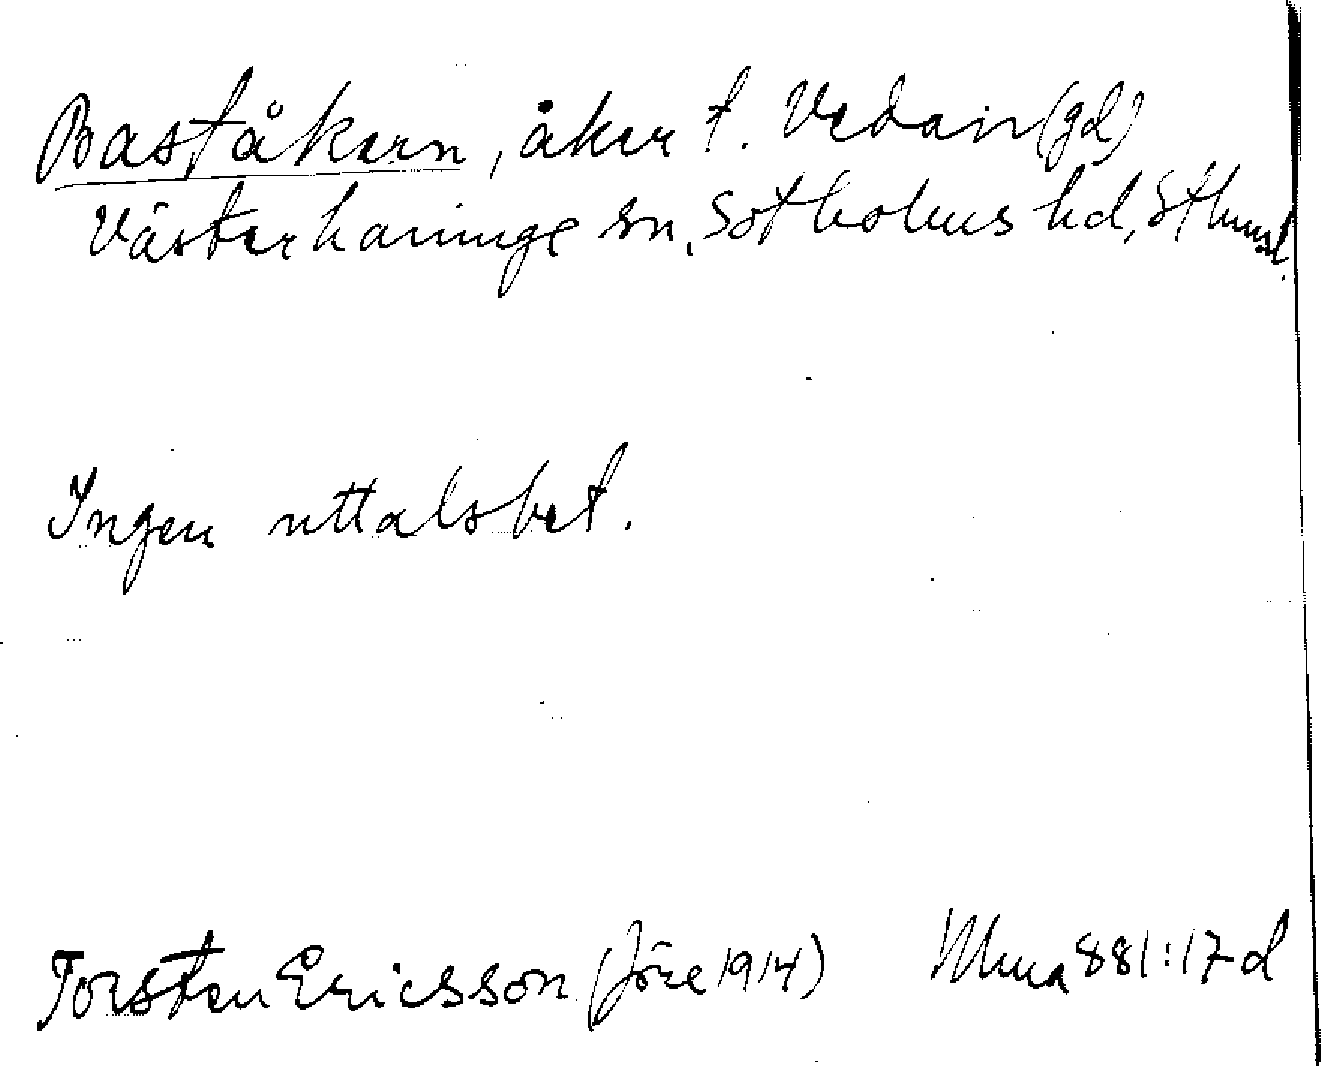 Baståkern, åker t. Vedain (gd)
Västerhaninge sn, Sotholms hd, Sthmsl.
Ingen uttalsbet.
Torsten Ericsson (före 1914) 881:17d